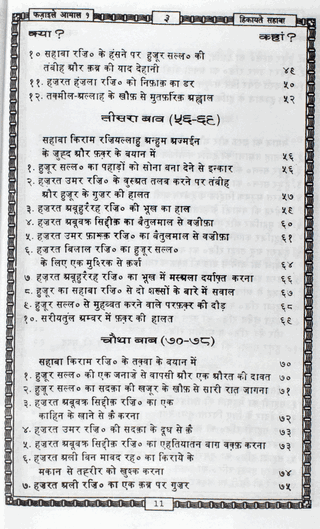 फ़ज़ाइले आमाल १ ३ हिकायते सहाबा
क्या ? कहां ?
१० सहाबा रज़ि० के हंसने पर हुज़ूर सल्ल० की
तंबीह और क़ब्र की याद देहानी ४९
११. हज़रत हंज़ला रज़ि० को निफ़ाक़ का डर ५०
१२. तक्मील-अल्लाह के ख़ौफ़ से मुतफ़र्रिक़ अह्वाल ५२
तीसरा बाब (५६-६९)
सहाबा किराम रज़ियल्लाहु अन्हुम अज्मईन
के ज़ुह्द और फ़क़्र के बयान में ५६
१. हुज़ूर सल्ल० का पहाड़ों को सोना बना देने से इन्कार ५६
२. हज़रत उमर रज़ि० के वुस्अत तलब करने पर तंबीह
और हुज़ूर के गुज़र की हालत ५७
३. हज़रत अबूहुरैरह रज़ि० की भूख का हाल ५९
४. हज़रत अबूबक्र सिद्दीक़ का बैतुलमाल से वज़ीफ़ा ६०
५. हज़रत उमर फ़ारूक़ रज़ि० का बैतुलमाल से वज़ीफ़ा ६१
६. हज़रत बिलाल रज़ि० का हुज़ूर सल्ल०
के लिए एक मुश्रिक से क़र्ज़ ६४
७ हज़रत अबूहुरैरह रज़ि० का भूख में मस्अला दर्याफ़्त करना ६६
८. हुज़ूर का सहाबा रज़ि० से दो शख़्सों के बारे में सवाल ६७
९. हुज़ूर सल्ल० से मुहब्बत करने वाले परफ़क़्र की दौड़ ६८
१०. सरीयतुल अम्बर में फ़क़्र की हालत ६९
चौथा बाब (७०-७८)
सहाबा किराम रज़ि० के तक़्वा के बयान में ७०
१. हुज़ूर सल्ल० की एक जनाज़े से वापसी और एक औरत की दावत ७०
२. हुज़ूर सल्ल० का सदक़ा की खजूर के ख़ौफ़ से सारी रात जागना ७१
३. हज़रत अबूबक्र सिद्दीक़ रज़ि० का एक
काहिन के खाने से क़ै करना ७२
४. हज़रत उमर रज़ि० की सदक़ा के दूध से क़ै ७३
५. हज़रत अबूबक्र सिद्दीक़ रज़ि० का एहतियातन बाग़ वक़्फ़ करना ७३
६. हज़रत अली बिन माबद रह० का किराये के
मकान से तह्रीर को ख़ुश्क करना ७४
७. हज़रत अली रज़ि० का एक क़ब्र पर गुज़र ७५
11